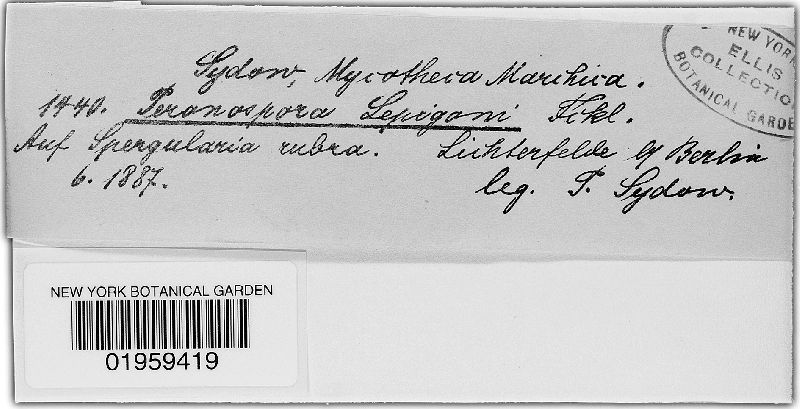 Sydow, Mycotheca Marchica.
1440. Peronospora Lepigoni Fckl.
Auf Spergularia rubra. Lichterfelde b/ Berlin
6. 1887. leg. P. Sydow.
NEW YORK
ELLIS
COLLECTION
BOTANICAL GARDE
NEW YORK BOTANICAL GARDEN
01959419